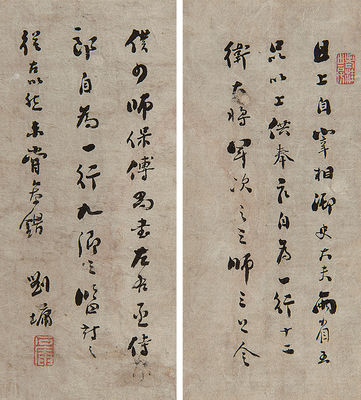 且上自宰相御史大夫兩省五
品以上供奉官自為一行十二
衛大將軍次之三師三公令
僕少師保傅尚書左右丞侍
郎自為一行九卿三監對之
從古以然未嘗參錯 劉墉